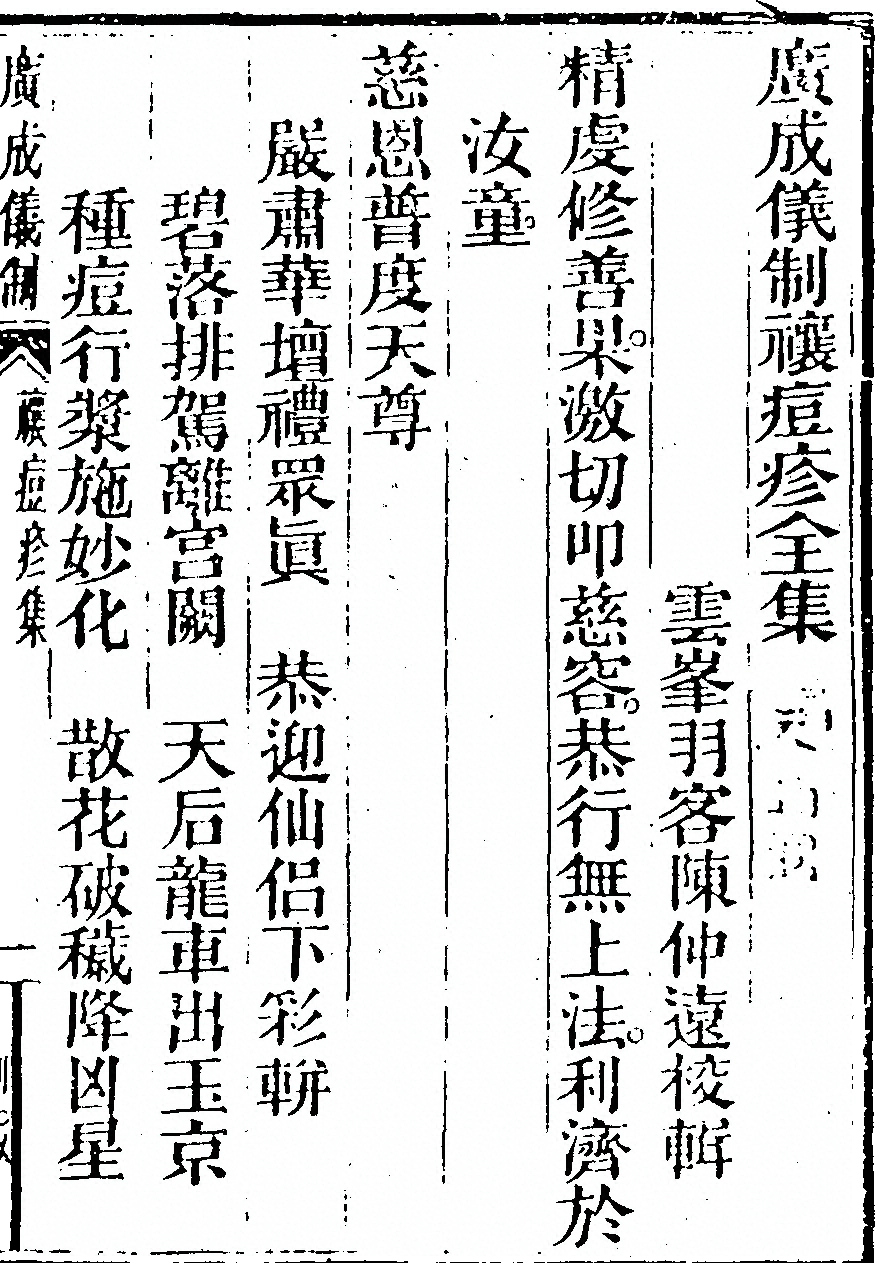 廣成儀制禳痘疹全集
雲峯羽客陳仲遠校輯
精虔修善果。激切叩慈容。恭行無上法。利濟於
汝童。
慈恩普度天尊
嚴肅華壇禮眾眞　恭迎仙侣下彩輧
碧落排駕離宮闕　天后龍車出玉京
種痘行漿施妙化　散花破穢降凶星
廣成儀制　禳痘疹集　一